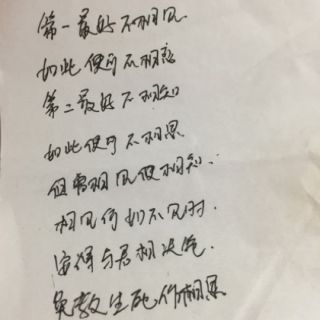 第一最好不相见
如此便可不相恋
第二最好不相知
如此便可不相思
但曾相见便相知.
相见何如不见时.
安得与君相决绝.
免教生死作相思